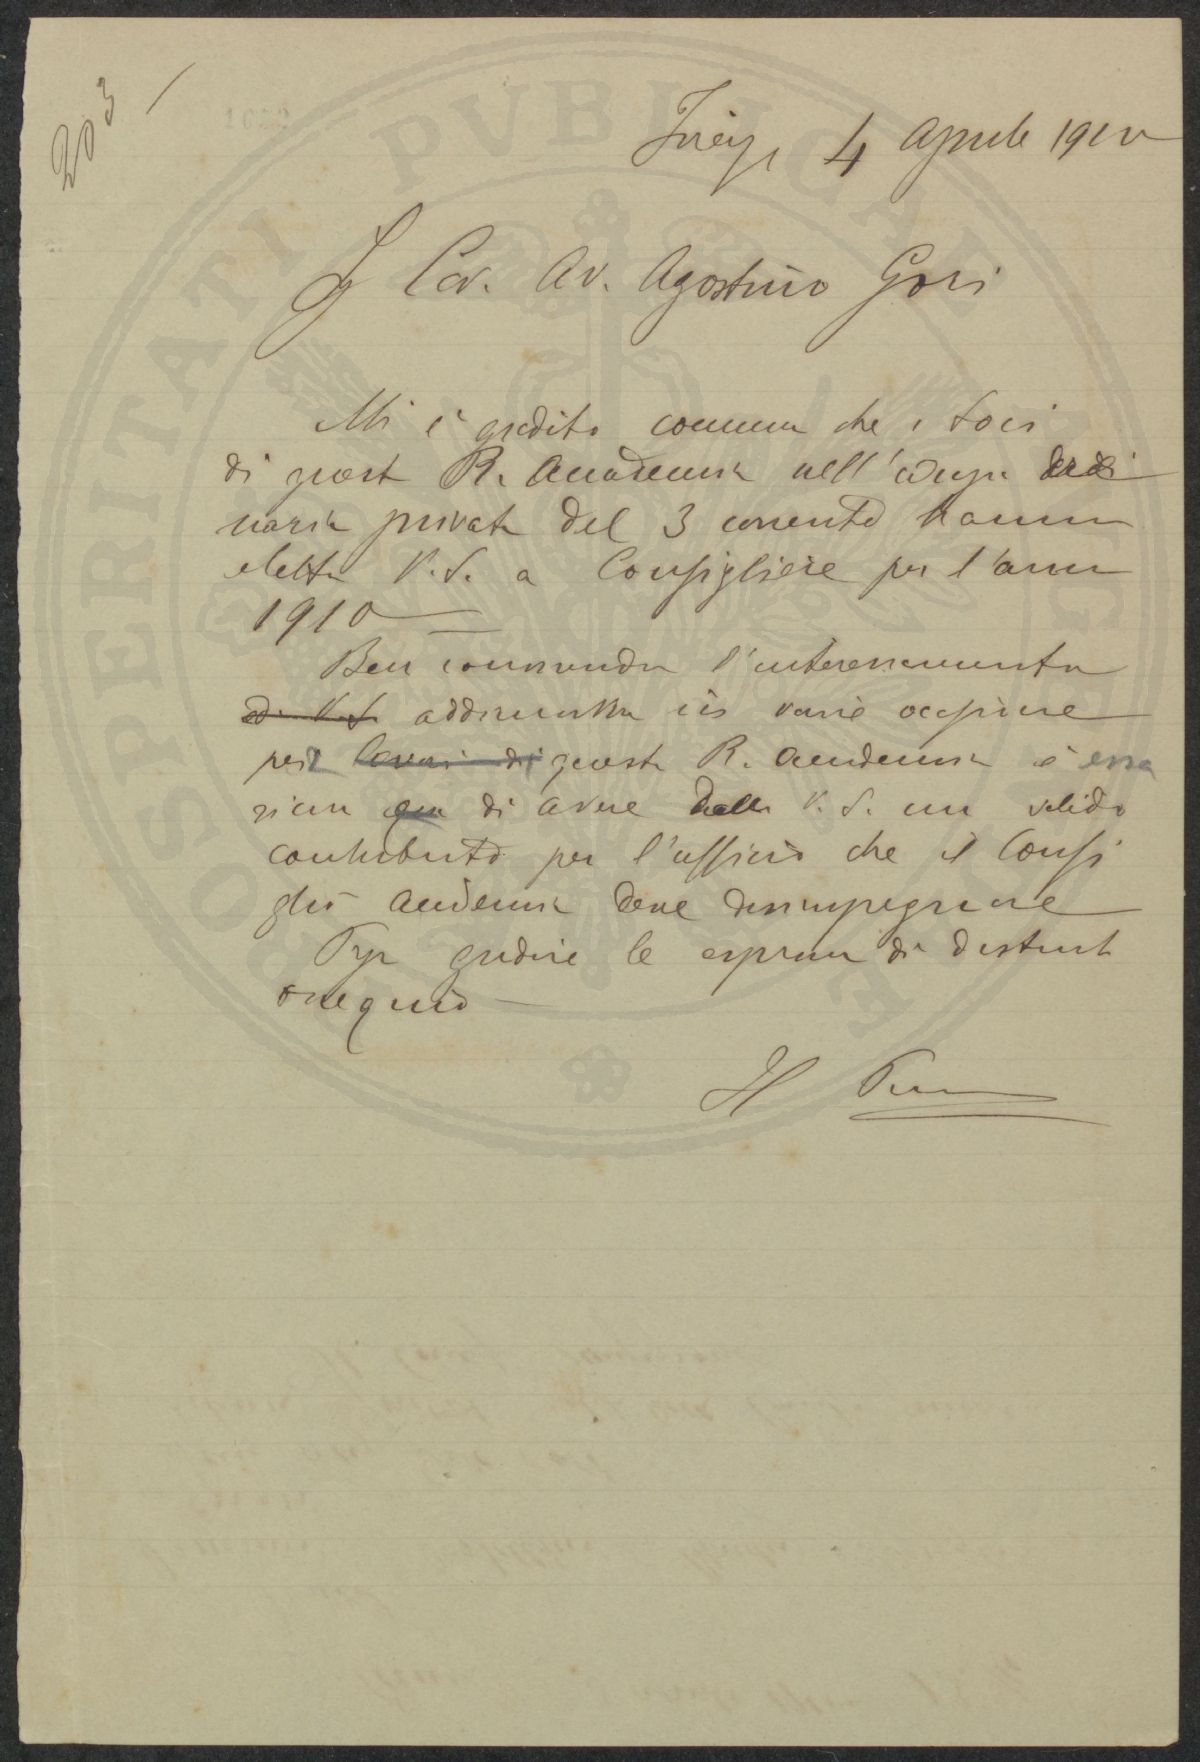 203
4 Aprile 1910
Cav. Av. Agostino Gori
Mi è gradito comunicare che i Soci
di questa R. Accademia nell'adunza ordi
naria privata del 3 corrente hanno
eletto V. S. a Consigliere per l'anno
1910
Ben conoscendo l'interessamento
di V. S. addimostrato in varie occasioni
per i lavori di questa R. Accademia
di avere dalla V. S. un valido
contributo per l'ufficio che il Consi
glio Accademico deve disimpegnare
gradire le espressioni di distinto
ossequio
Il Pres
PROSPERITATI PVBLICAE AVGENDAE